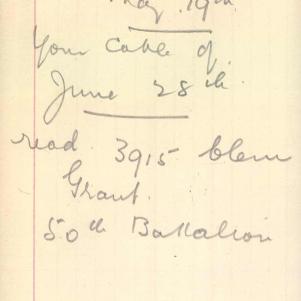 May 19th
Your Cable of
June 28th.
read 3915 Clem
Grant.
50th Battalion